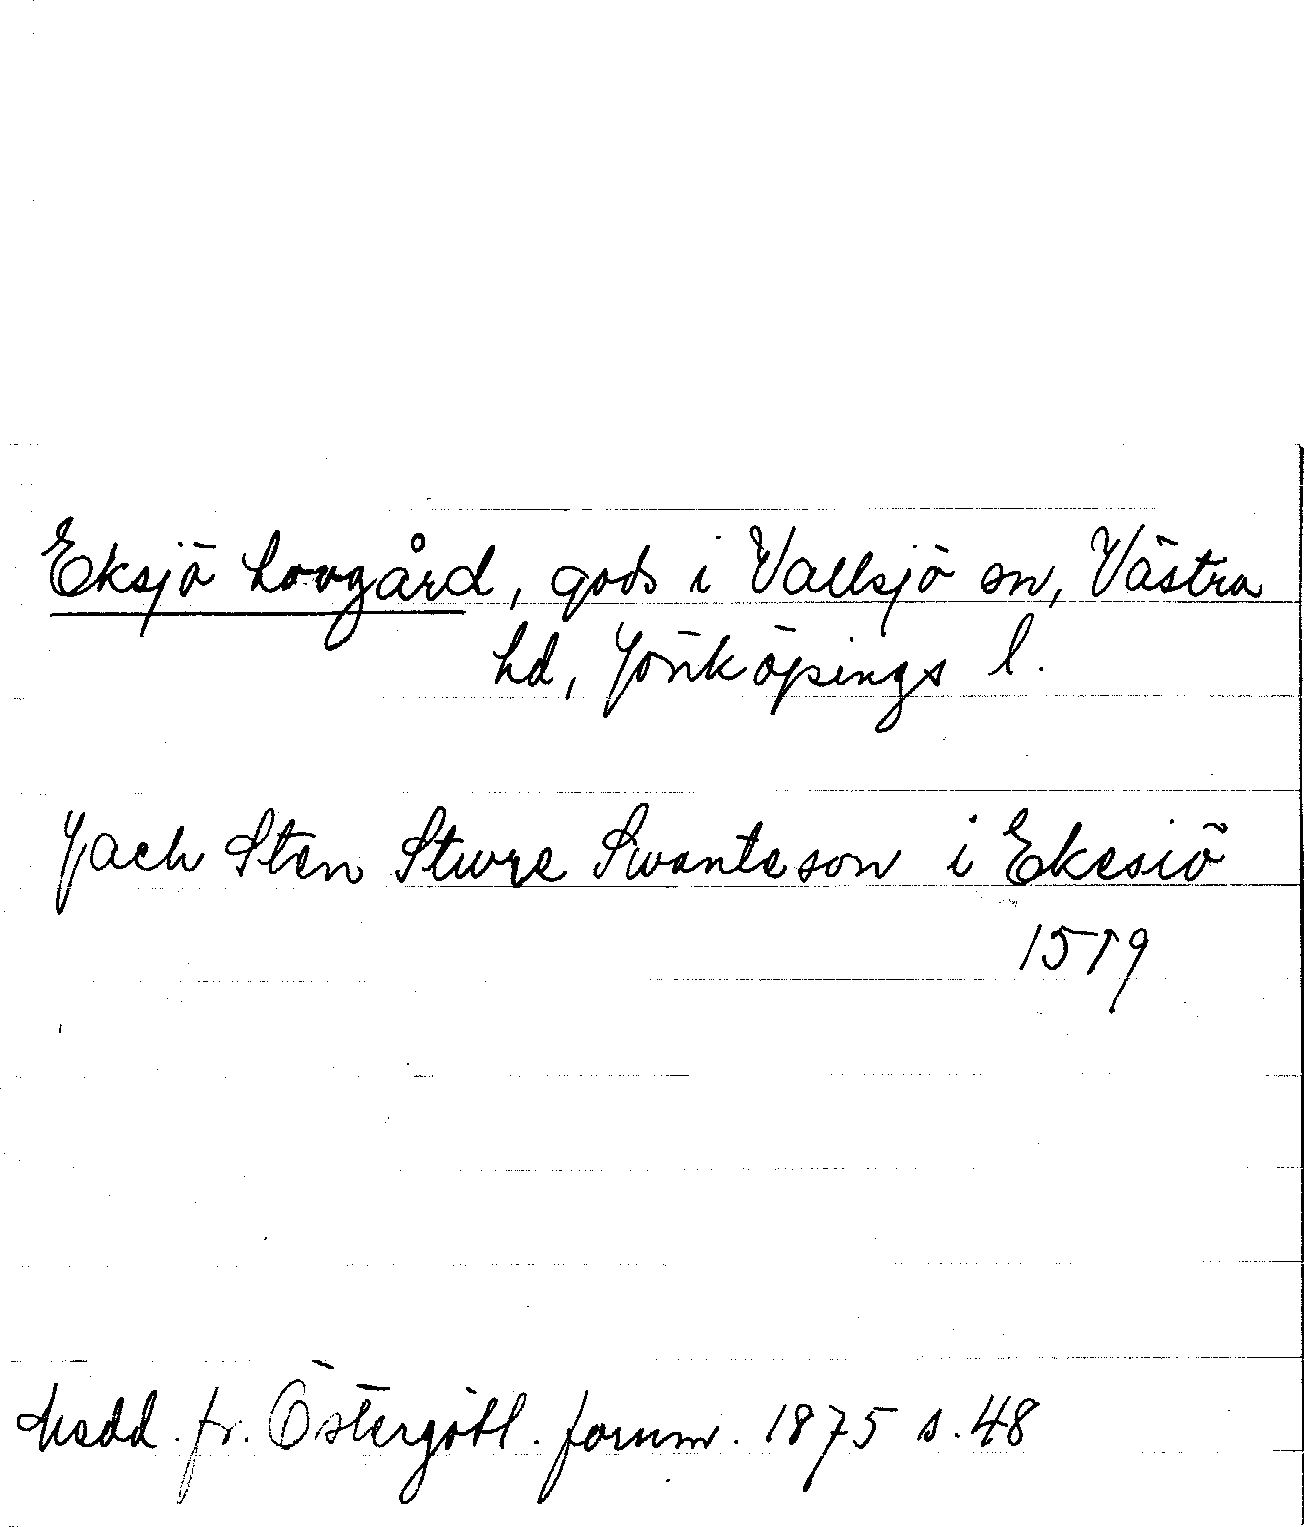 Eksjö hovgård, gods i Vallsjö sn, Västra
hd, Jönköpings l.
Jach Sten Sture Swanteson i Ekesiö
1519
Medd. fr. Östergötl. fornm. 1875 s. 48